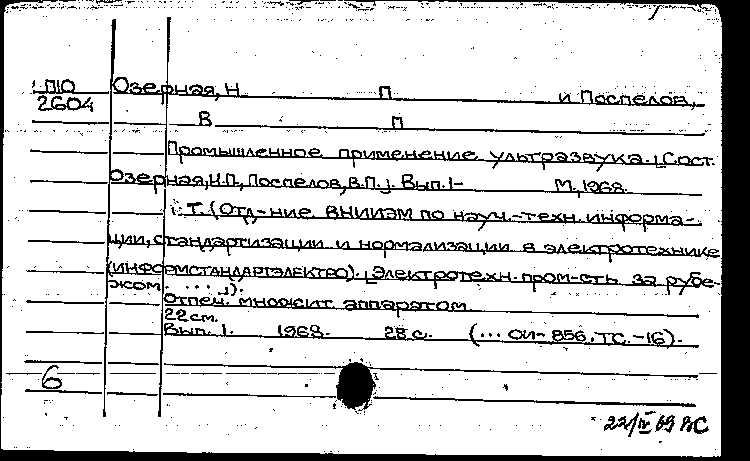 П10 Озерная, Н П и Поспелов,
2604
В П
Промышленное применение ультразвука. [Сост.
Озерная, Н.П., Поспелов, В.П.]. Вып.1- М., 1968.
т. (Отд-ние ВНИИЭМ по науч.-техн. информа-
ции, стандартизации и нормализации в электротехнике
(ИНФОРМСТАНДАРТЭЛЕКТРО). [Электротехн. пром-сть за рубе-
жом. ...]).
Отпеч. множит. аппаратом.
22 см.
Вып. 1. 1968. 28 с. (... ОИ-856, ТС.-16).
6
22/IV 69 ВС